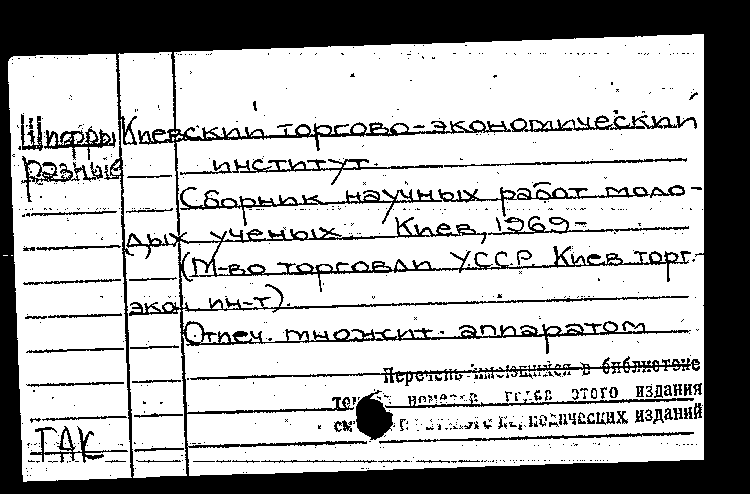 Шифры Киевский торгово-экономический
разные институт.
Сборник научных работ моло-
дых ученых. Киев, 1969-
(М-во торговли УССР. Киев. торг.-
экон. ин-т).
Отпеч. множит. аппаратом
Перечень имеющихся в библиотеке
номеров, годов этого издания
периодических изданий
ТАК